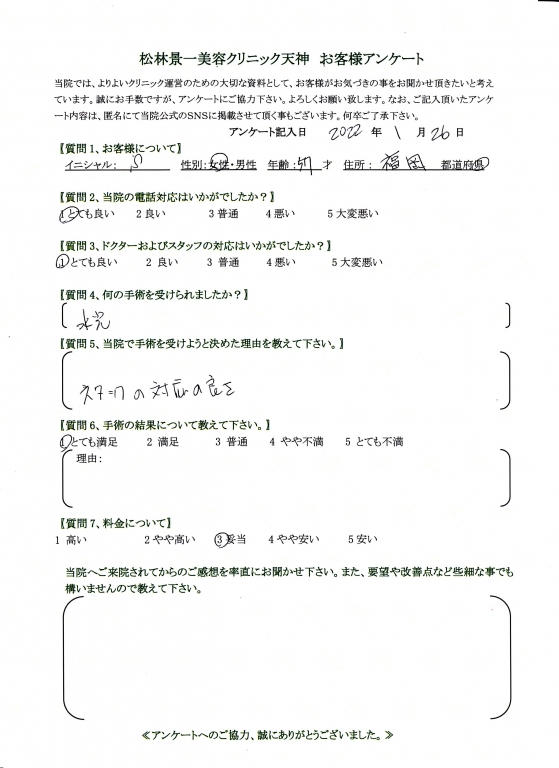 松林景一美容クリニック天神 お客様アンケート
当院では、よりよいクリニック運営のための大切な資料として、お客様がお気づきの事をお聞かせ頂きたいと考え
ています。誠にお手数ですが、アンケートにご協力下さい。よろしくお願い致します。なお、ご記入頂いたアンケ
ート内容は、匿名にて当院公式のSNSに掲載させて頂く事もございます。何卒ご了承下さい。
アンケート記入日 2022 年 1 月 26 日
【質問1、お客様について】
イニシャル: S 性別:女性・男性 年齢: 才 住所: 福岡 都道府県
【質問2、当院の電話対応はいかがでしたか?】
1 とても良い 2 良い 3 普通 4 悪い 5 大変悪い
【質問3、ドクターおよびスタッフの対応はいかがでしたか?】
1 とても良い 2 良い 3 普通 4 悪い 5 大変悪い
【質問4、何の手術を受けられましたか?】
水光
【質問5、当院で手術を受けようと決めた理由を教えて下さい。】
スタッフの対応の良さ
【質問6、手術の結果について教えて下さい。】
1 とても満足 2 満足 3 普通 4 やや不満 5 とても不満
理由:
【質問7、料金について】
1 高い 2 やや高い 3 妥当 4 やや安い 5 安い
当院へご来院されてからのご感想を率直にお聞かせ下さい。また、要望や改善点など些細な事でも
構いませんので教えて下さい。
≪アンケートへのご協力、誠にありがとうございました。≫